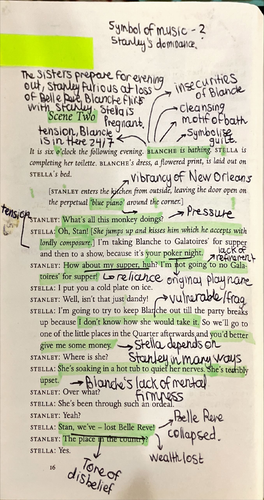 Symbol of music - 2
Stanley's dominance.
The sisters prepare for evening
out, Stanley furious at loss
of Belle Reve. Blanche flirts
with Stanley. Stella is
Pregnant,
tension, Blanche
is in there 24/7
insecurities
of Blanche
cleansing
motif of bath
Symbolise
guilt.
Scene Two
It is six o'clock the following evening. BLANCHE is bathing. STELLA is
completing her toilette. BLANCHE'S dress, a flowered print, is laid out on
STELLA'S bed.
vibrancy of New Orleans
[STANLEY enters the kitchen from outside, leaving the door open on
the perpetual 'blue piano' around the corner.]
tension
STANLEY: What's all this monkey doings?
Pressure
STELLA: Oh, Stan! [She jumps up and kisses him which he accepts with
lordly composure.] I'm taking Blanche to Galatoires' for supper
and then to a show, because it's your poker night.
lack of
refinement
STANLEY: How about my supper, huh? I'm not going to no Gala-
toires' for supper!
reliance
STELLA: I put you a cold plate on ice.
STANLEY: Well, isn't that just dandy!
vulnerable/frag
STELLA: I'm going to try to keep Blanche out till the party breaks
up because I don't know how she would take it. So we'll go to
one of the little places in the Quarter afterwards and you'd better
give me some money.
Stella depends on
Stanley in many ways
STANLEY: Where is she?
STELLA: She's soaking in a hot tub to quiet her nerves. She's terribly
upset.
Blanche's lack of mental
firmness
STANLEY: Over what?
STELLA: She's been through such an ordeal.
STANLEY: Yeah?
STELLA: Stan, we've – lost Belle Reve!
Belle Reve
collapsed.
STANLEY: The place in the country?
wealth lost
STELLA: Yes.
16
Tone of
disbelief